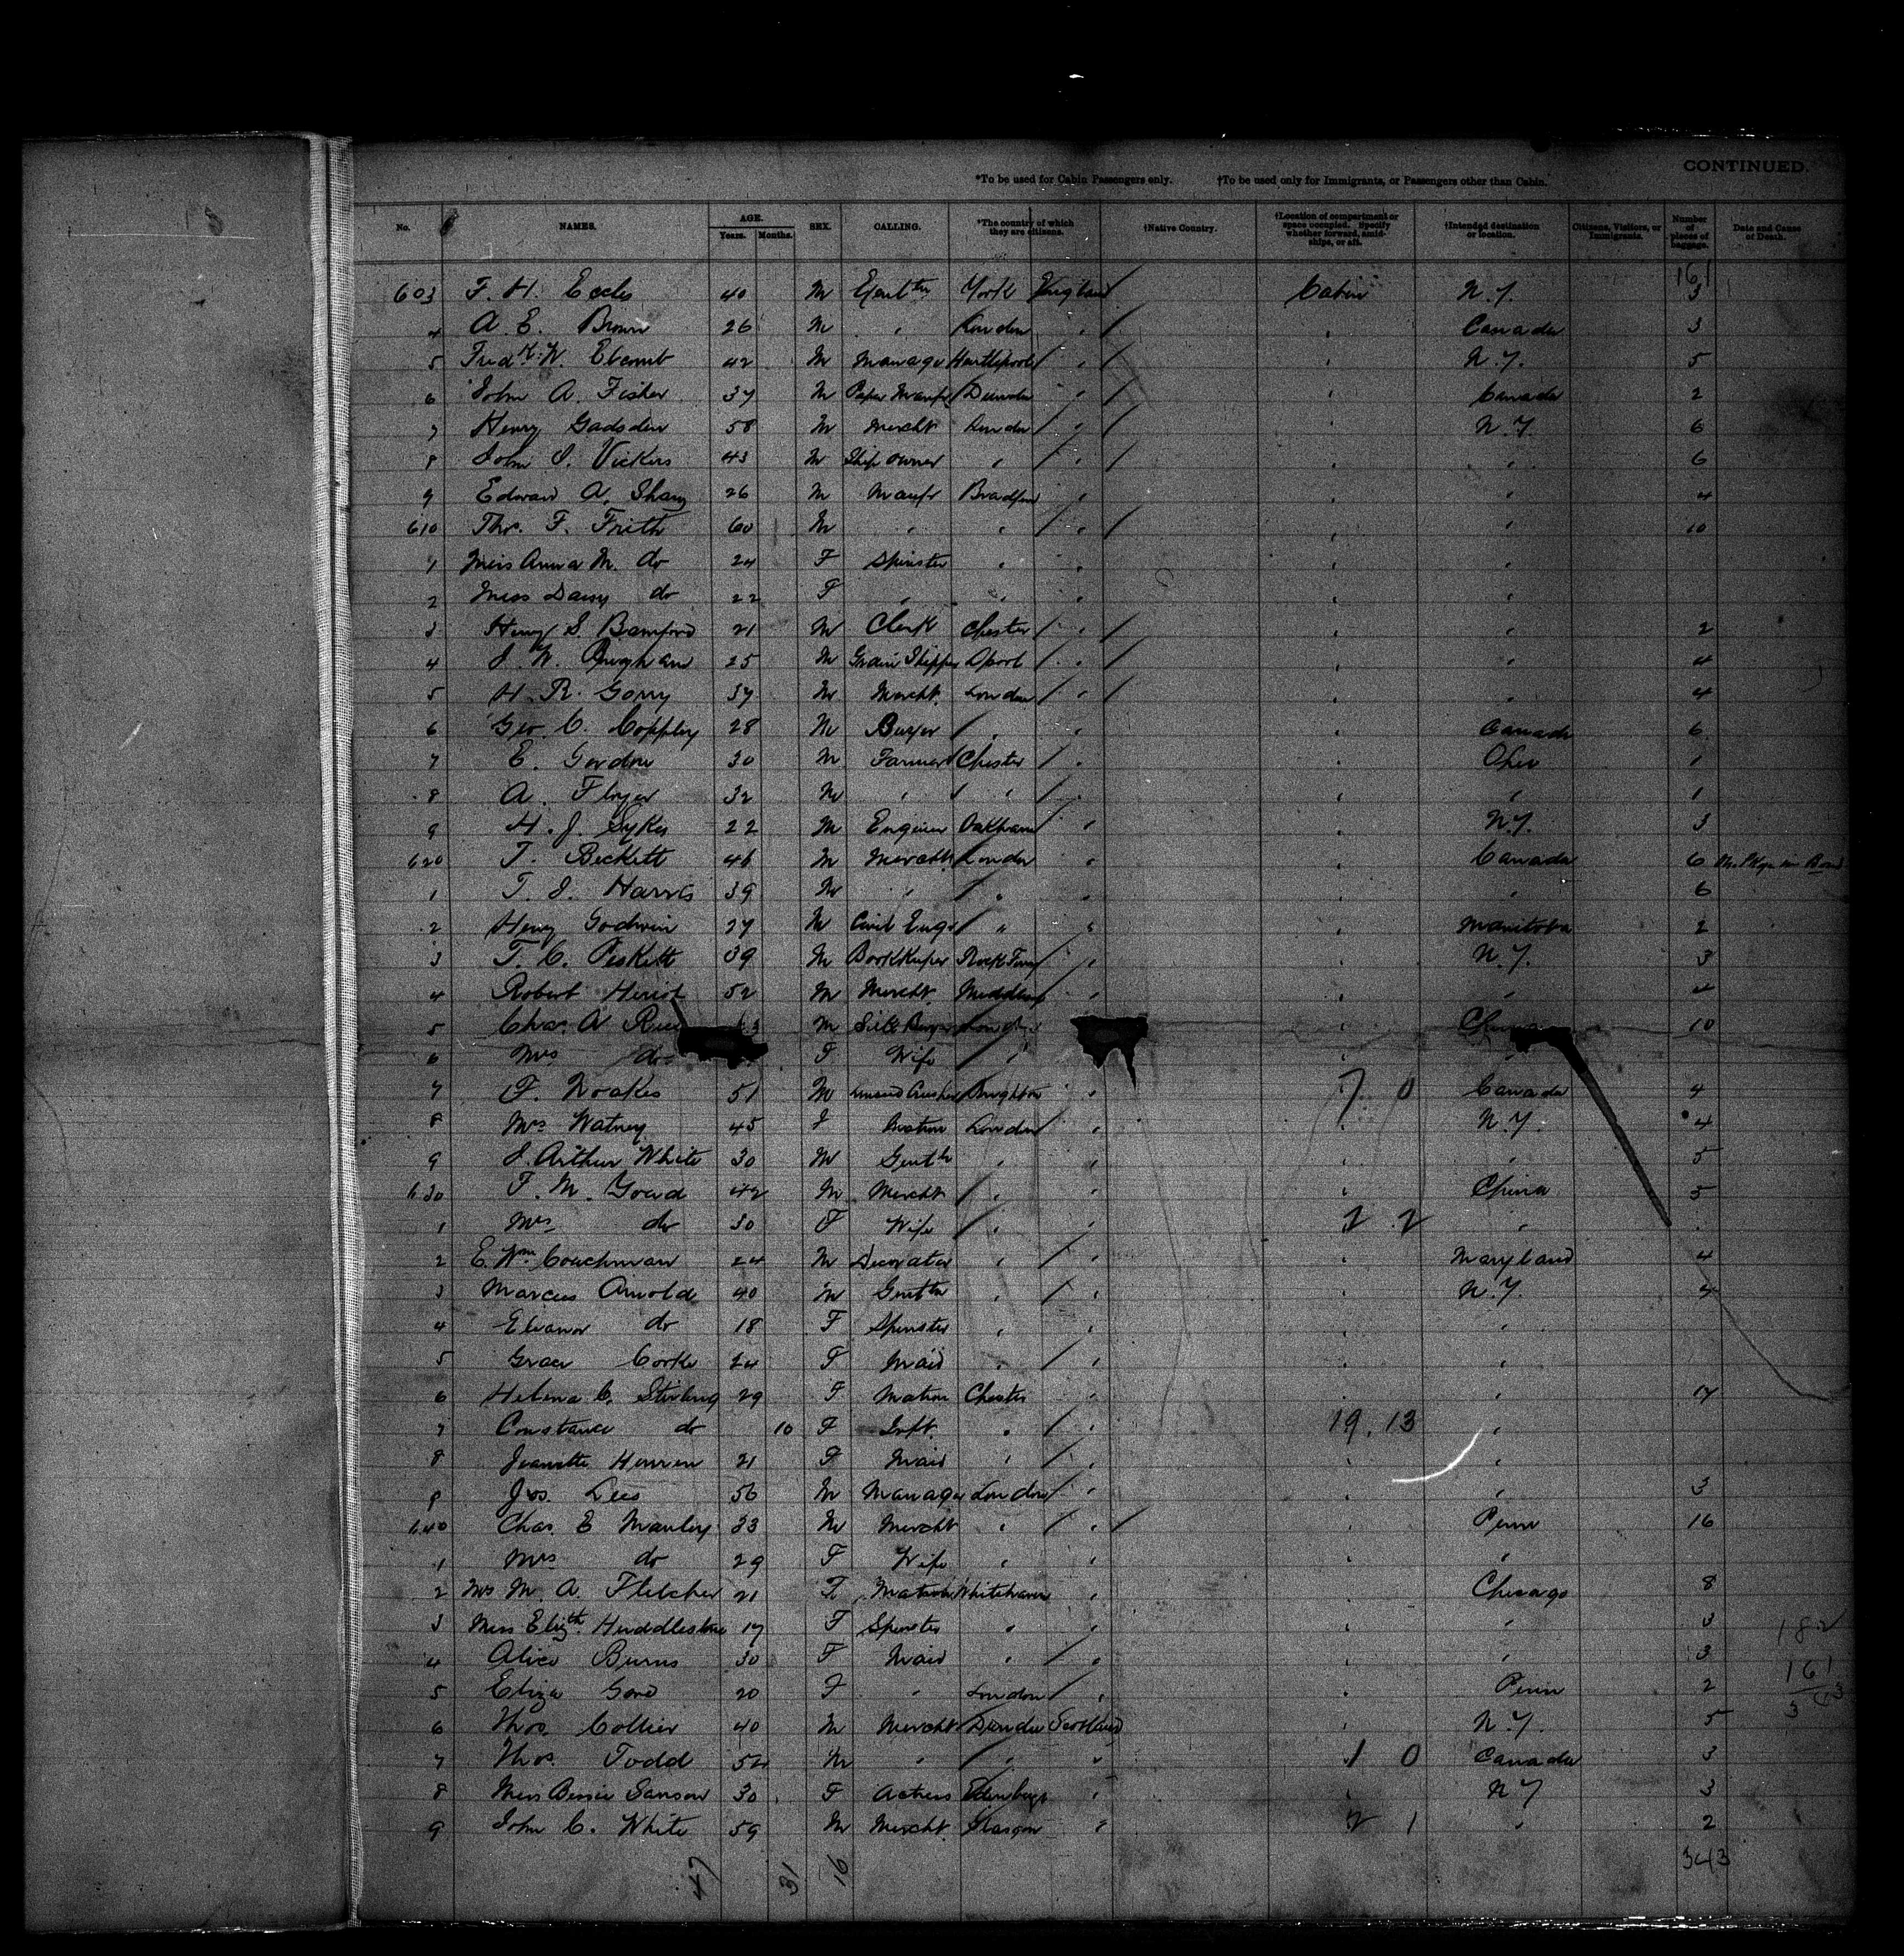 CONTINUED.
*To be used for Cabin Passengers only. †To be used only for Immigrants, or Passengers other than Cabin.
No. NAMES. AGE. Years. Months. SEX. CALLING. *The country of which they are citizens. †Native Country. †Location of compartment or space occupied. Specify whether forward, amidships, or aft. †Intended destination or location. Citizens, Visitors, or Immigrants. Number of pieces of baggage. Date and Cause of Death.
161
603 F. H. Eccles 40 M Gentln York England Cabin N.Y. 3
4 A. E. Brown 26 M " London " " Canada 3
5 Fredk. W. 42 M Manager Hartlepool " " N.Y. 5
6 John A. Fisher 37 M Paper Manufr " " Canada 2
7 Henry Gadsden 58 M Mercht London " " N.Y. 6
8 John Vickers 43 M Ship owner " " " " 6
9 Edward A. 26 M Manfr Bradford " " " 4
610 Thos. F. Frith 60 M " " " " " 10
1 Miss Anna M. do 24 F Spinster " " " "
2 Miss Daisy do 22 F " " " " "
3 Henry S. Bamford 21 M Clerk Chester " " " 2
4 25 M Grain Shipper Lpool " " " 4
5 H. R. Gorry 37 M Mercht. London " " " 4
6 Geo. C. Coppley 28 M Buyer " " " Canada 6
7 E. Gordon 30 M Farmer Chester " " Ohio 1
8 A. Floyer 32 M " " " " " 1
9 H. J. Sykes 22 M Engineer Oakham " " N.Y. 3
620 T. Beckett 46 M Mercht London " " Canada 6
1 T. J. Harris 39 M " " " " " 6
2 Henry Godwin 27 M Civil Engr " " " Manitoba 2
3 T. C. Peskett 39 M Bookkeeper Rock Ferry " " N.Y. 3
4 Robert Heriot 52 M Mercht. " " " 4
5 Chas. A. M Silk Buyer London " China 10
6 Mrs do F Wife " "
7 F. Noakes 51 M Linseed Crusher Brighton " 7 0 Canada 4
8 Mrs Watney 45 F Matron London " " N.Y. 4
9 J. Arthur White 30 M Gentln " " " " 5
630 F. M. 42 M Mercht " " " China 5
1 Mrs do 30 F Wife " " 2 2 "
2 E. Wm. Coachman 24 M Decorator " " " Maryland 4
3 Marcus Arnold 40 M Gentln " " " N.Y. 4
4 Eleanor do 18 F Spinster " " " "
5 Grace Cooke 24 F Maid " " " "
6 Helena C. Stirling 29 F Matron Chester " " " 17
7 Constance do 10 F Inft. " " 19. 13 "
8 Jeanette 21 F Maid " " " "
9 Jos. Lees 56 M Manager London " " " 3
640 Chas. E Manley 33 M Mercht " " " Penn 16
1 Mrs do 29 F Wife " " " "
2 Mrs M. A. Fletcher 21 F Matron Whitehaven " " Chicago 8
3 Miss Elizth. Huddlestone 17 F Spinster " " " " 3
4 Alice Burns 30 F Maid " " " " 3
5 Eliza 20 F " London " " Penn 2
6 Thos. Collier 40 M Mercht Dundee Scotland N.Y. 5
7 Thos. Todd 52 M " " " 1 0 Canada 3
8 Miss Bessie Sanson 30 F Actress Edinburgh " " N.Y 3
9 John C. White 59 M Mercht. Glasgow " 2 1 " 2
182
161
343
47 31 16